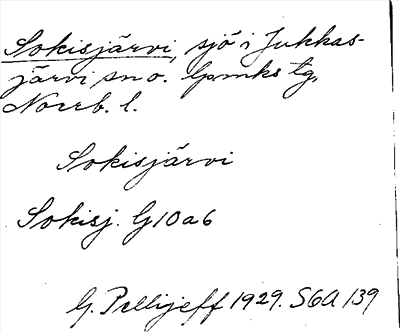 Sokisjärvi, sjö i Jukkas-
järvi sn o. lpmks tg,
Norrb. l.
Sokisjärvi
Sokisj. G10a6
G. Pellijeff 1929. S6A 139